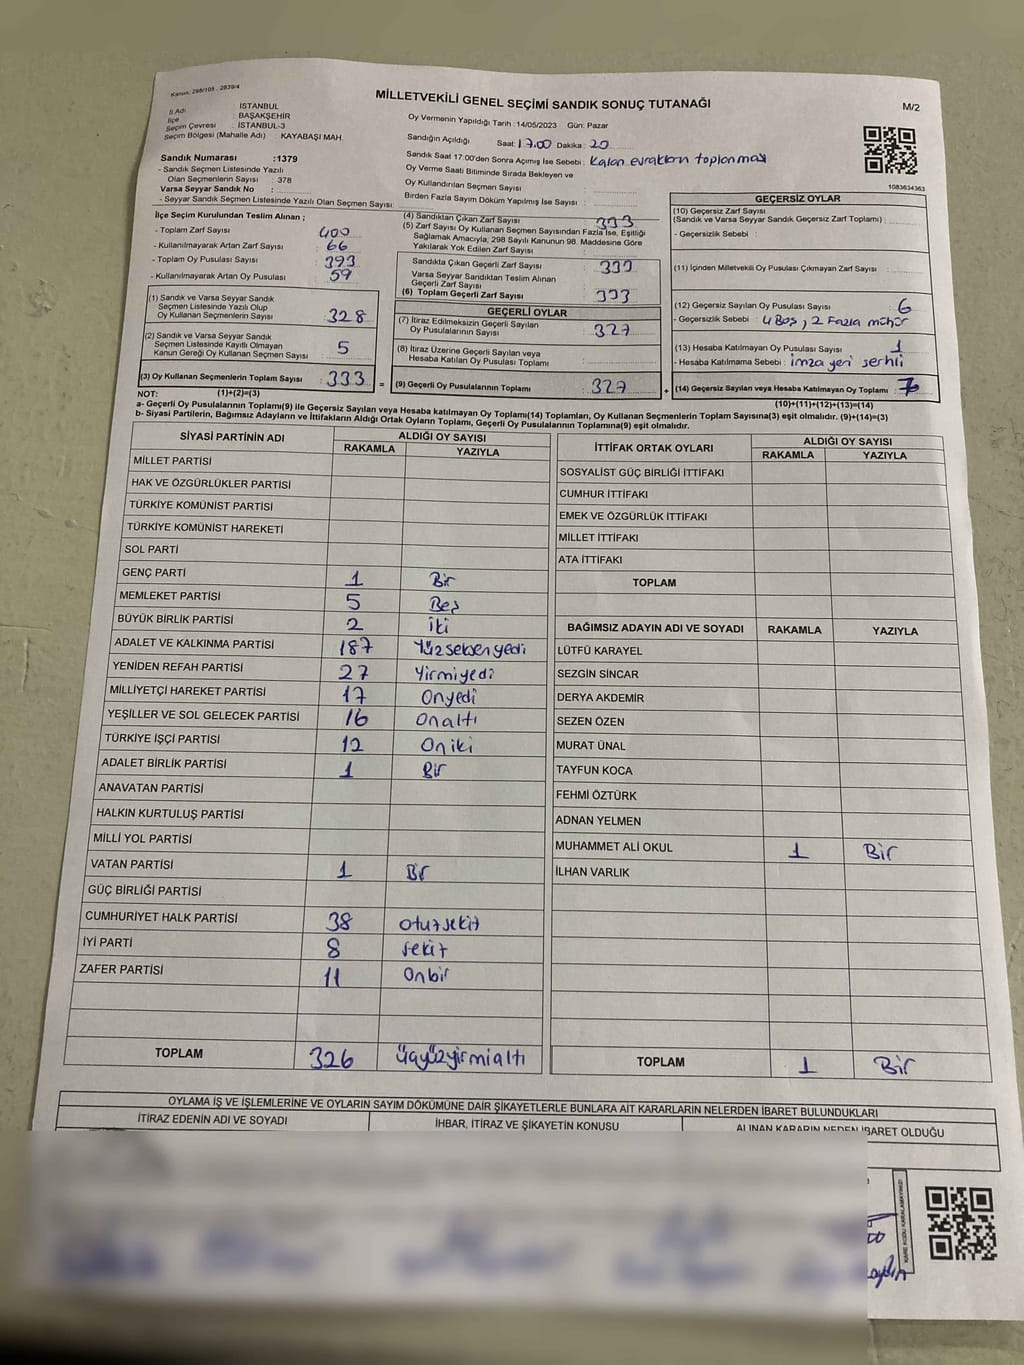 Kanun, 298/105 , 2839/4
MİLLETVEKİLİ GENEL SEÇİMİ SANDIK SONUÇ TUTANAĞI
M/2
İl Adı : İSTANBUL
İlçe : BAŞAKŞEHİR
Seçim Çevresi : İSTANBUL-3
Seçim Bölgesi (Mahalle Adı) : KAYABAŞI MAH.
Sandık Numarası :1379
- Sandık Seçmen Listesinde Yazılı
Olan Seçmenlerin Sayısı : 378
Varsa Seyyar Sandık No :
- Seyyar Sandık Seçmen Listesinde Yazılı Olan Seçmen Sayısı:
Oy Vermenin Yapıldığı Tarih :14/05/2023 Gün: Pazar
Sandığın Açıldığı Saat: 17.00 Dakika: 20
Sandık Saat 17:00'den Sonra Açımış İse Sebebi : Kalan evrakların toplanması
Oy Verme Saati Bitiminde Sırada Bekleyen ve
Oy Kullandırılan Seçmen Sayısı :
Birden Fazla Sayım Döküm Yapılmış İse Sayısı :
1083634363
İlçe Seçim Kurulundan Teslim Alınan ;
- Toplam Zarf Sayısı : 400
- Kullanılmayarak Artan Zarf Sayısı : 66
- Toplam Oy Pusulası Sayısı : 393
- Kullanılmayarak Artan Oy Pusulası : 59
(1) Sandık ve Varsa Seyyar Sandık
Seçmen Listesinde Yazılı Olup
Oy Kullanan Seçmenlerin Sayısı : 328
(2) Sandık ve Varsa Seyyar Sandık
Seçmen Listesinde Kayıtlı Olmayan
Kanun Gereği Oy Kullanan Seçmen Sayısı : 5
(3) Oy Kullanan Seçmenlerin Toplam Sayısı : 333
(4) Sandıktan Çıkan Zarf Sayısı : 333
(5) Zarf Sayısı Oy Kullanan Seçmen Sayısından Fazla İse, Eşitliği
Sağlamak Amacıyla; 298 Sayılı Kanunun 98. Maddesine Göre
Yakılarak Yok Edilen Zarf Sayısı :
Sandıkta Çıkan Geçerli Zarf Sayısı : 333
Varsa Seyyar Sandıktan Teslim Alınan
Geçerli Zarf Sayısı :
(6) Toplam Geçerli Zarf Sayısı : 333
GEÇERLİ OYLAR
(7) İtiraz Edilmeksizin Geçerli Sayılan
Oy Pusulalarının Sayısı : 327
(8) İtiraz Üzerine Geçerli Sayılan veya
Hesaba Katılan Oy Pusulası Toplamı :
= (9) Geçerli Oy Pusulalarının Toplamı : 327 +
GEÇERSİZ OYLAR
(10) Geçersiz Zarf Sayısı
(Sandık ve Varsa Seyyar Sandık Geçersiz Zarf Toplamı) :
- Geçersizlik Sebebi :
(11) İçinden Milletvekili Oy Pusulası Çıkmayan Zarf Sayısı :
(12) Geçersiz Sayılan Oy Pusulası Sayısı : 6
- Geçersizlik Sebebi : 4 Boş, 2 Fazla mühür
(13) Hesaba Katılmayan Oy Pusulası Sayısı : 1
- Hesaba Katılmama Sebebi : imza yeri serhli
(14) Geçersiz Sayılan veya Hesaba Katılmayan Oy Toplamı :
NOT: (1)+(2)=(3)
(10)+(11)+(12)+(13)=(14)
a- Geçerli Oy Pusulalarının Toplamı(9) ile Geçersiz Sayılan veya Hesaba katılmayan Oy Toplamı(14) Toplamları, Oy Kullanan Seçmenlerin Toplam Sayısına(3) eşit olmalıdır. (9)+(14)=(3)
b- Siyasi Partilerin, Bağımsız Adayların ve İttifakların Aldığı Ortak Oyların Toplamı, Geçerli Oy Pusulalarının Toplamına(9) eşit olmalıdır.
SİYASİ PARTİNİN ADI
ALDIĞI OY SAYISI
RAKAMLA YAZIYLA
MİLLET PARTİSİ
HAK VE ÖZGÜRLÜKLER PARTİSİ
TÜRKİYE KOMÜNİST PARTİSİ
TÜRKİYE KOMÜNİST HAREKETİ
SOL PARTİ
GENÇ PARTİ 1 Bir
MEMLEKET PARTİSİ 5 Beş
BÜYÜK BİRLİK PARTİSİ 2 iki
ADALET VE KALKINMA PARTİSİ 187 Yüzseksenyedi
YENİDEN REFAH PARTİSİ 27 Yirmiyedi
MİLLİYETÇİ HAREKET PARTİSİ 17 Onyedi
YEŞİLLER VE SOL GELECEK PARTİSİ 16 Onaltı
TÜRKİYE İŞÇİ PARTİSİ 12 Oniki
ADALET BİRLİK PARTİSİ 1 Bir
ANAVATAN PARTİSİ
HALKIN KURTULUŞ PARTİSİ
MİLLİ YOL PARTİSİ
VATAN PARTİSİ 1 Bir
GÜÇ BİRLİĞİ PARTİSİ
CUMHURİYET HALK PARTİSİ 38 otuzsekiz
İYİ PARTİ 8 sekiz
ZAFER PARTİSİ 11 Onbir
TOPLAM 326 üçyüzyirmialtı
İTTİFAK ORTAK OYLARI
ALDIĞI OY SAYISI
RAKAMLA YAZIYLA
SOSYALİST GÜÇ BİRLİĞİ İTTİFAKI
CUMHUR İTTİFAKI
EMEK VE ÖZGÜRLÜK İTTİFAKI
MİLLET İTTİFAKI
ATA İTTİFAKI
TOPLAM
BAĞIMSIZ ADAYIN ADI VE SOYADI RAKAMLA YAZIYLA
LÜTFÜ KARAYEL
SEZGİN SİNCAR
DERYA AKDEMİR
SEZEN ÖZEN
MURAT ÜNAL
TAYFUN KOCA
FEHMİ ÖZTÜRK
ADNAN YELMEN
MUHAMMET ALİ OKUL 1 Bir
İLHAN VARLIK
TOPLAM 1 Bir
OYLAMA İŞ VE İŞLEMLERİNE VE OYLARIN SAYIM DÖKÜMÜNE DAİR ŞİKAYETLERLE BUNLARA AİT KARARLARIN NELERDEN İBARET BULUNDUKLARI
İTİRAZ EDENİN ADI VE SOYADI
İHBAR, İTİRAZ VE ŞİKAYETİN KONUSU
ALINAN KARARIN NEDEN İBARET OLDUĞU
KARE KODU KARALAMAYINIZ!